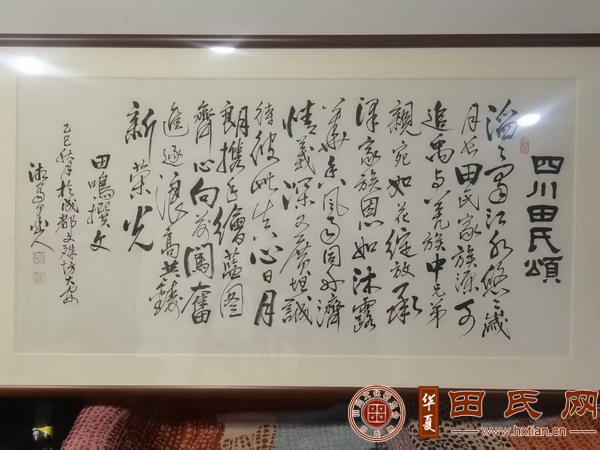 四川田氏頌
滔〻蜀江水悠〻歲
月長田氏家族源可
追禹与羌族中兄弟
親宛如花綻放承
澤家族恩如沐露
華年風雨同舟濟
情義深又廣坦誠
待彼此心日月
朗攜手繪藍图
齊心向前闖奮
進逐浪高共鑄
新榮光
田鳴撰文
乙巳於成都文殊坊大安
人
华夏
田氏网
www.hxtian.cn